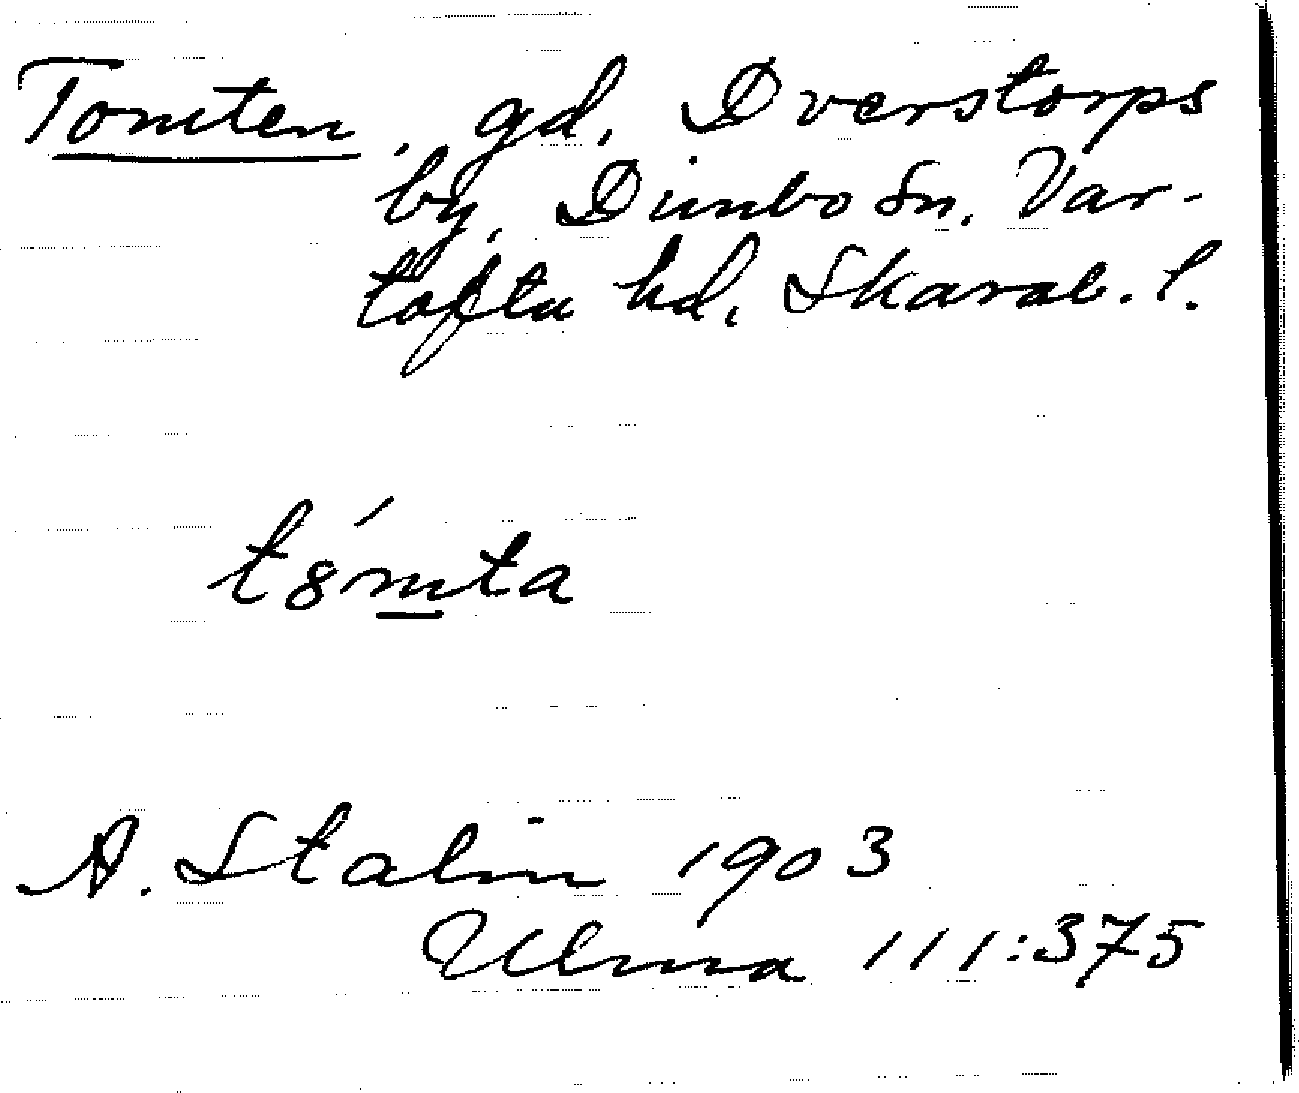 Tomten, gd, Dverstorps
by, Dimbo sn. Var-
tofta hd, Skarab. l.
t8́mta
A. Stalin 1903
Ulma 111:375